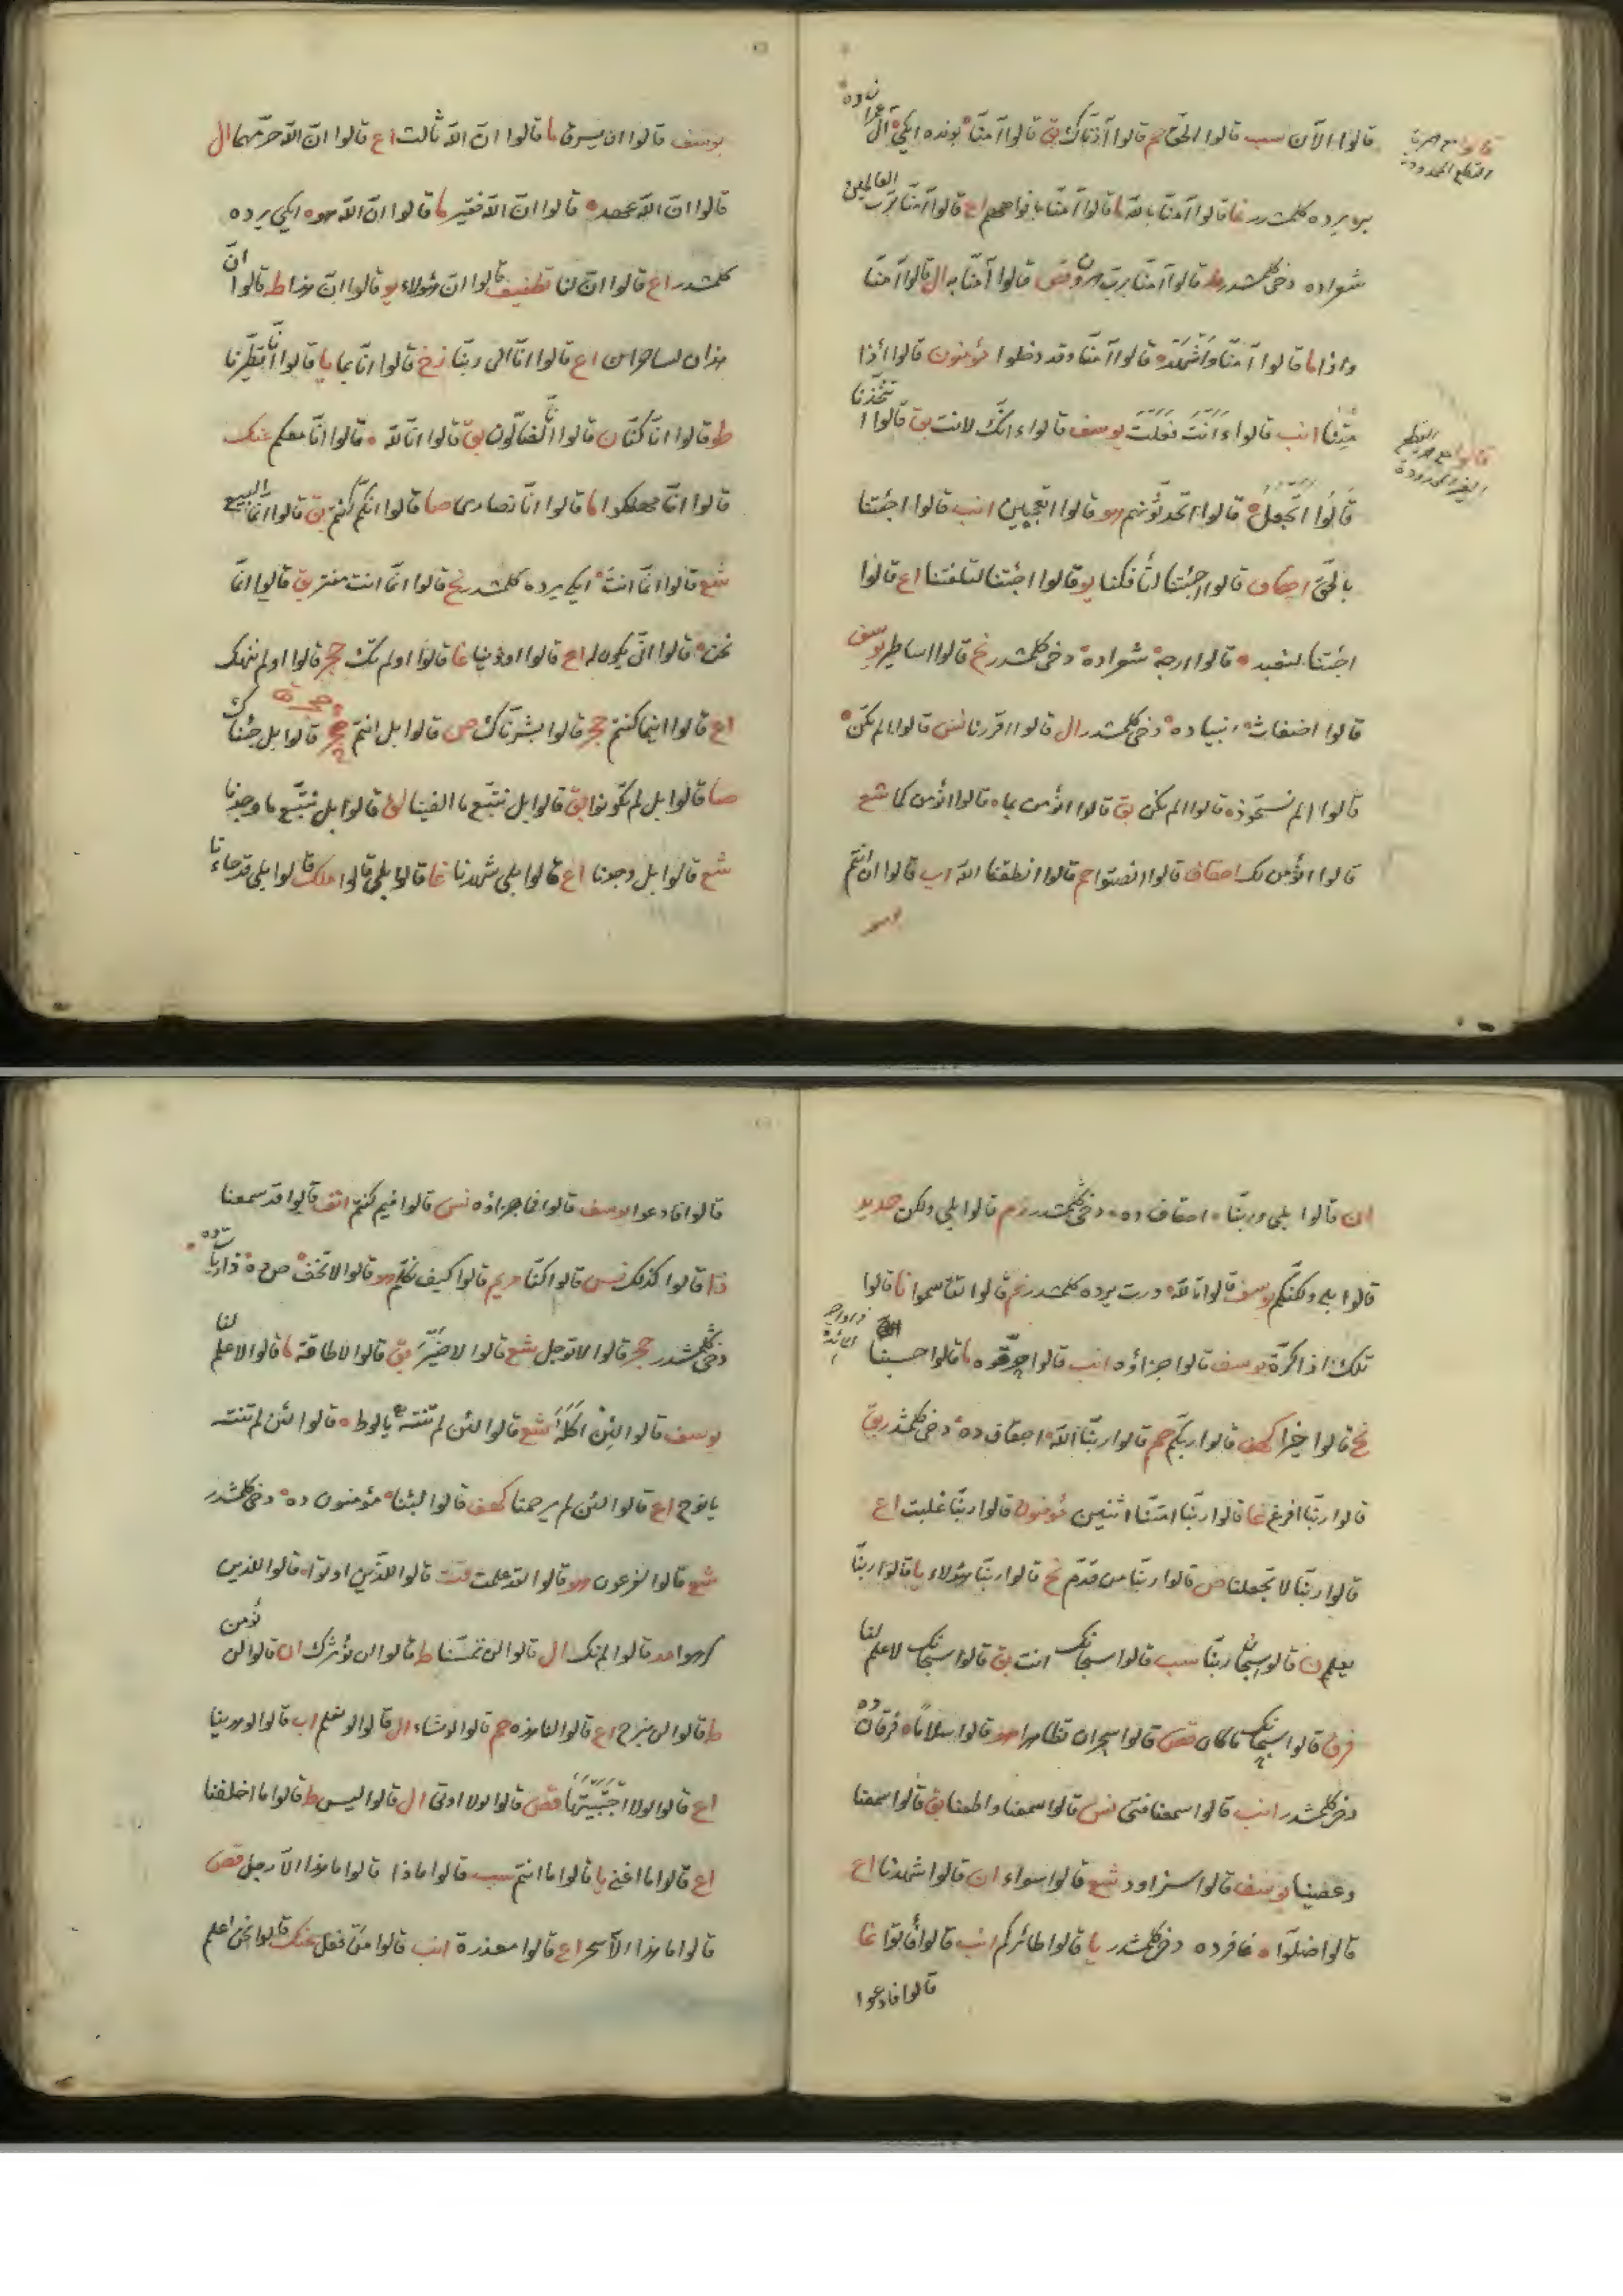 قالوا الآن سب قالوا الحق حم قالوا آذناك بق قالوا آمنا بونده ايكى آل عمران ده
قالوا مع همزة القطع الممدودة
بر يرده كلمشدر غا قالوا آمنا بالله ما قالوا آمنا بافواههم اع قالوا آمنا برب العالمين
شعراده دخى كلمشدر ط قالوا آمنا برب هرون قص قالوا آمنا به ال قالوا آمنا
واذا ما قالوا آمنا واشهد قالوا آمنا وقد دخلوا مؤمنون قالوا أئذا
متنا انب قالوا ءانت فعلت يوسف قالوا ءانك لانت بق قالوا اتتخذنا
قالوا مع همزة القطع الغير الممدودة
قالوا اتجعل قالوا اتحدثونهم هو قالوا اتعجبين انب قالوا اجئتنا
بالحق احقاف قالوا اجئتنا لتأفكنا يو قالوا اجئتنا لتلفتنا اع قالوا
اجئتنا لنعبد قالوا ارجه شعراده دخى كلمشدر نح قالوا اساطير يوسف
قالوا اضغاث انبياده دخى كلمشدر ال قالوا اقررنا نس قالوا الم تكن
قالوا الم نستحوذ قالوا الم نكن بق قالوا انؤمن بما قالوا انؤمن كما شع
قالوا انؤمن لك احقاف قالوا انصتوا حم قالوا انطقنا الله اب قالوا ان انتم
يوسف
يوسف قالوا ان يسرق ما قالوا ان الله ثالث اع قالوا ان الله حرمهما ال
قالوا ان الله عهد قالوا ان الله فقير ما قالوا ان الله هو ايكى يرده
كلمشدر اع قالوا ان لنا تطفيف قالوا ان هؤلاء يو قالوا ان هذا ط قالوا ان
هذان لساحران اع قالوا انا الى ربنا زخ قالوا انا بما يا قالوا انا تطيرنا
ط قالوا انا كنا ن قالوا انا لضالون بق قالوا انا لله قالوا انا معكم عنك
قالوا انا مهلكوا ما قالوا انا نصارى صا قالوا انكم كنتم بق قالوا انما البيع
شع قالوا انما انت ايكى يرده كلمشدر نح قالوا انما انت مفتر بق قالوا انما
نحن قالوا انى يكون له اع قالوا اوذينا غا قالوا اولم تك حجر قالوا اولم ننهك
اع قالوا اينما كنتم حجر قالوا بشرناك ص قالوا بل انتم حجر قالوا بل جئناك
صا قالوا بل لم تكونوا بق قالوا بل نتبع ما الفينا لق قالوا بل نتبع ما وجدنا
شع قالوا بل وجدنا اع قالوا بلى شهدنا غا قالوا بلى قالوا ملك قالوا بلى قد جاءنا
ان قالوا بلى وربنا احقاف ده دخى كلمشدر زم قالوا بلى ولكن حديد
قالوا بلى ولكنكم يوسف قالوا تالله درت يرده كلمشدر نم قالوا تقاسموا نا قالوا
تلك اذا كرة يوسف قالوا جزاؤه انب قالوا حرقوه ما قالوا حسبنا
نح قالوا خيرا كهف قالوا ربكم حم قالوا ربنا الله احقاف ده دخى كلمشدر بق
قالوا ربنا افرغ غا قالوا ربنا امتنا اثنتين مؤمنون قالوا ربنا غلبت اع
قالوا ربنا لا تجعلنا ص قالوا ربنا من قدم نح قالوا ربنا هؤلاء يا قالوا ربنا
يعلم ن قالوا سبحان ربنا سب قالوا سبحانك انت بق قالوا سبحانك لا علم لنا
فرق قالوا سبحانك ما كان قص قالوا سحران تظاهرا هو قالوا سلاما فرقان ده
دخى كلمشدر انب قالوا سمعنا فتى نس قالوا سمعنا واطعنا بق قالوا سمعنا
وعصينا يوسف قالوا سنراود شع قالوا سواء ان قالوا شهدنا اع
قالوا ضلوا غافرده دخى كلمشدر يا قالوا طائركم انب قالوا فأتوا غا
قالوا فادعوا
قالوا فادعوا يوسف قالوا فما جزاؤه نس قالوا فيم كنتم انف قالوا قد سمعنا
ذا قالوا كذلك نس قالوا كنا مريم قالوا كيف نكلم هو قالوا لا تخف ص ده ذاريات ده
دخى كلمشدر حجر قالوا لا توجل شع قالوا لا ضير بق قالوا لا طاقة ما قالوا لا علم لنا
يوسف قالوا لئن اكله شع قالوا لئن لم تنته يا لوط قالوا لئن لم تنته
يا نوح اع قالوا لئن لم يرحمنا كهف قالوا لبثنا مؤمنون ده دخى كلمشدر
شع قالوا لفرعون هو قالوا لقد علمت قت قالوا للذين اوتوا قالوا للذين
كرهوا مد قالوا لم نك ال قالوا لن تمسنا ط قالوا لن نؤثرك ان قالوا لن نؤمن
ط قالوا لن نبرح اع قالوا لنا هذه حم قالوا لو شاء ال قالوا لو نعلم اب قالوا لو هدينا
اع قالوا لولا اجتبيتها قص قالوا لولا اوتى ال قالوا ليس ط قالوا ما اخلفنا
اع قالوا ما اغنى يا قالوا ما انتم سب قالوا ماذا قالوا ما هذا الا رجل قص
قالوا ما هذا الا سحر اع قالوا معذرة انب قالوا من فعل عنك قالوا نحن اعلم